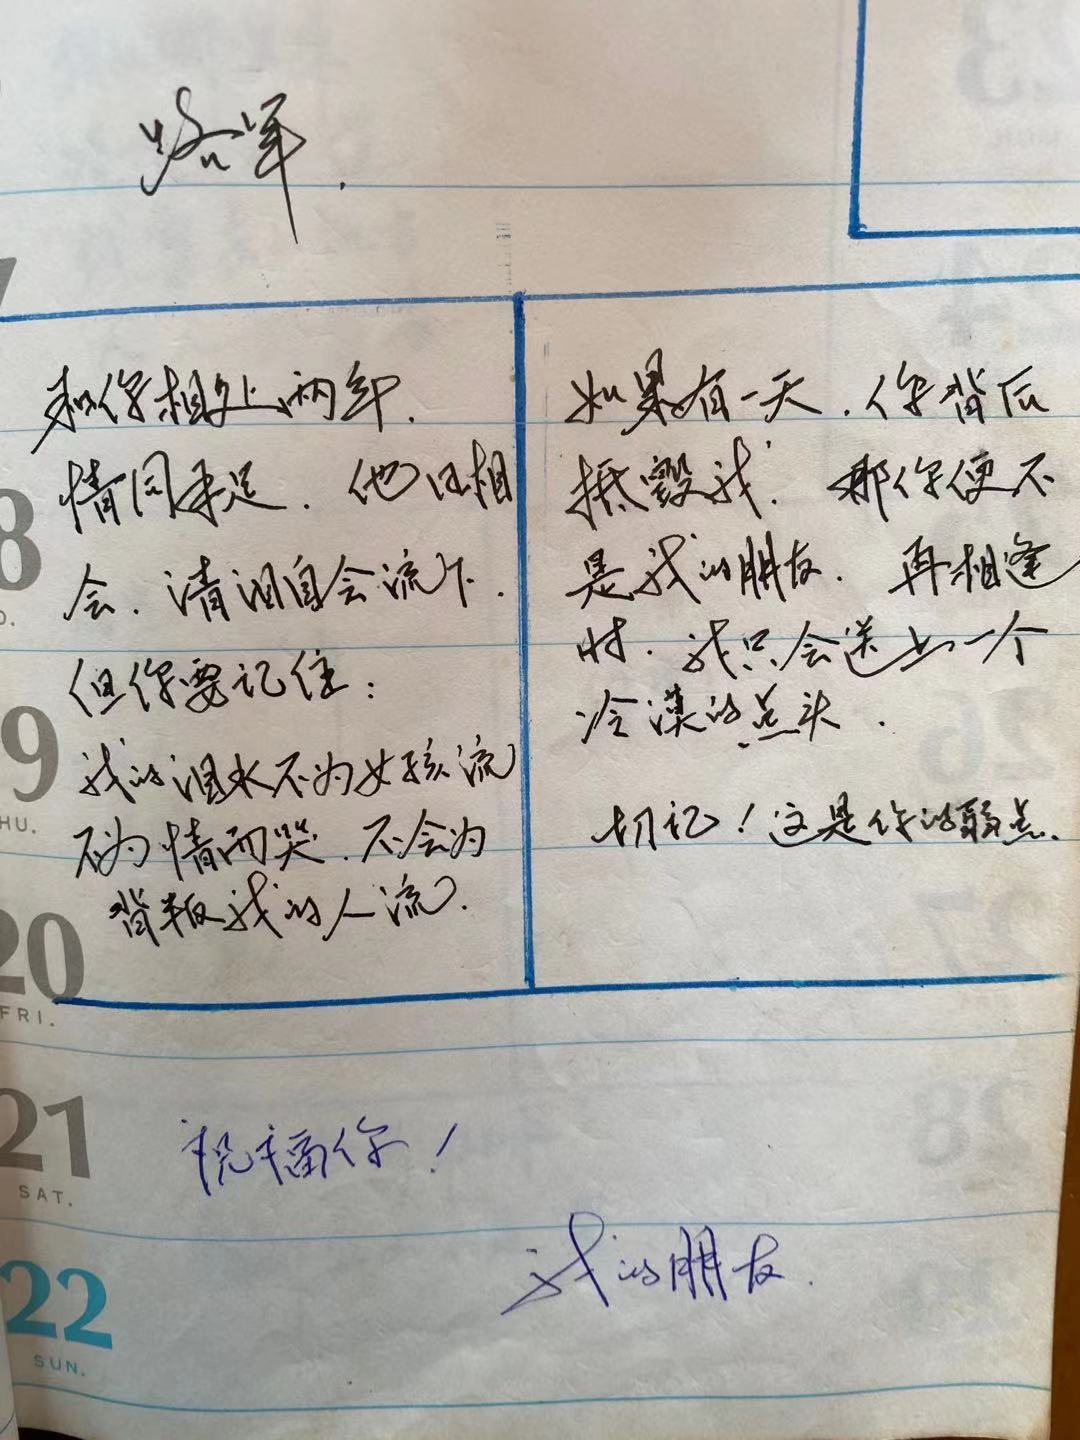 和你相处两年.
情同手足. 他日相
会. 清泪自会流下.
但你要记住:
我的泪水不为女孩流
不为情而哭. 不会为
背叛我的人流.
如果有一天. 你背后
抵毁我. 那你便不
是我的朋友. 再相逢
时. 我只会送上一个
冷漠的点头.
切记！这是你的弱点.
20
FRI.
21
SAT.
祝福你！
22
SUN.
我的朋友.